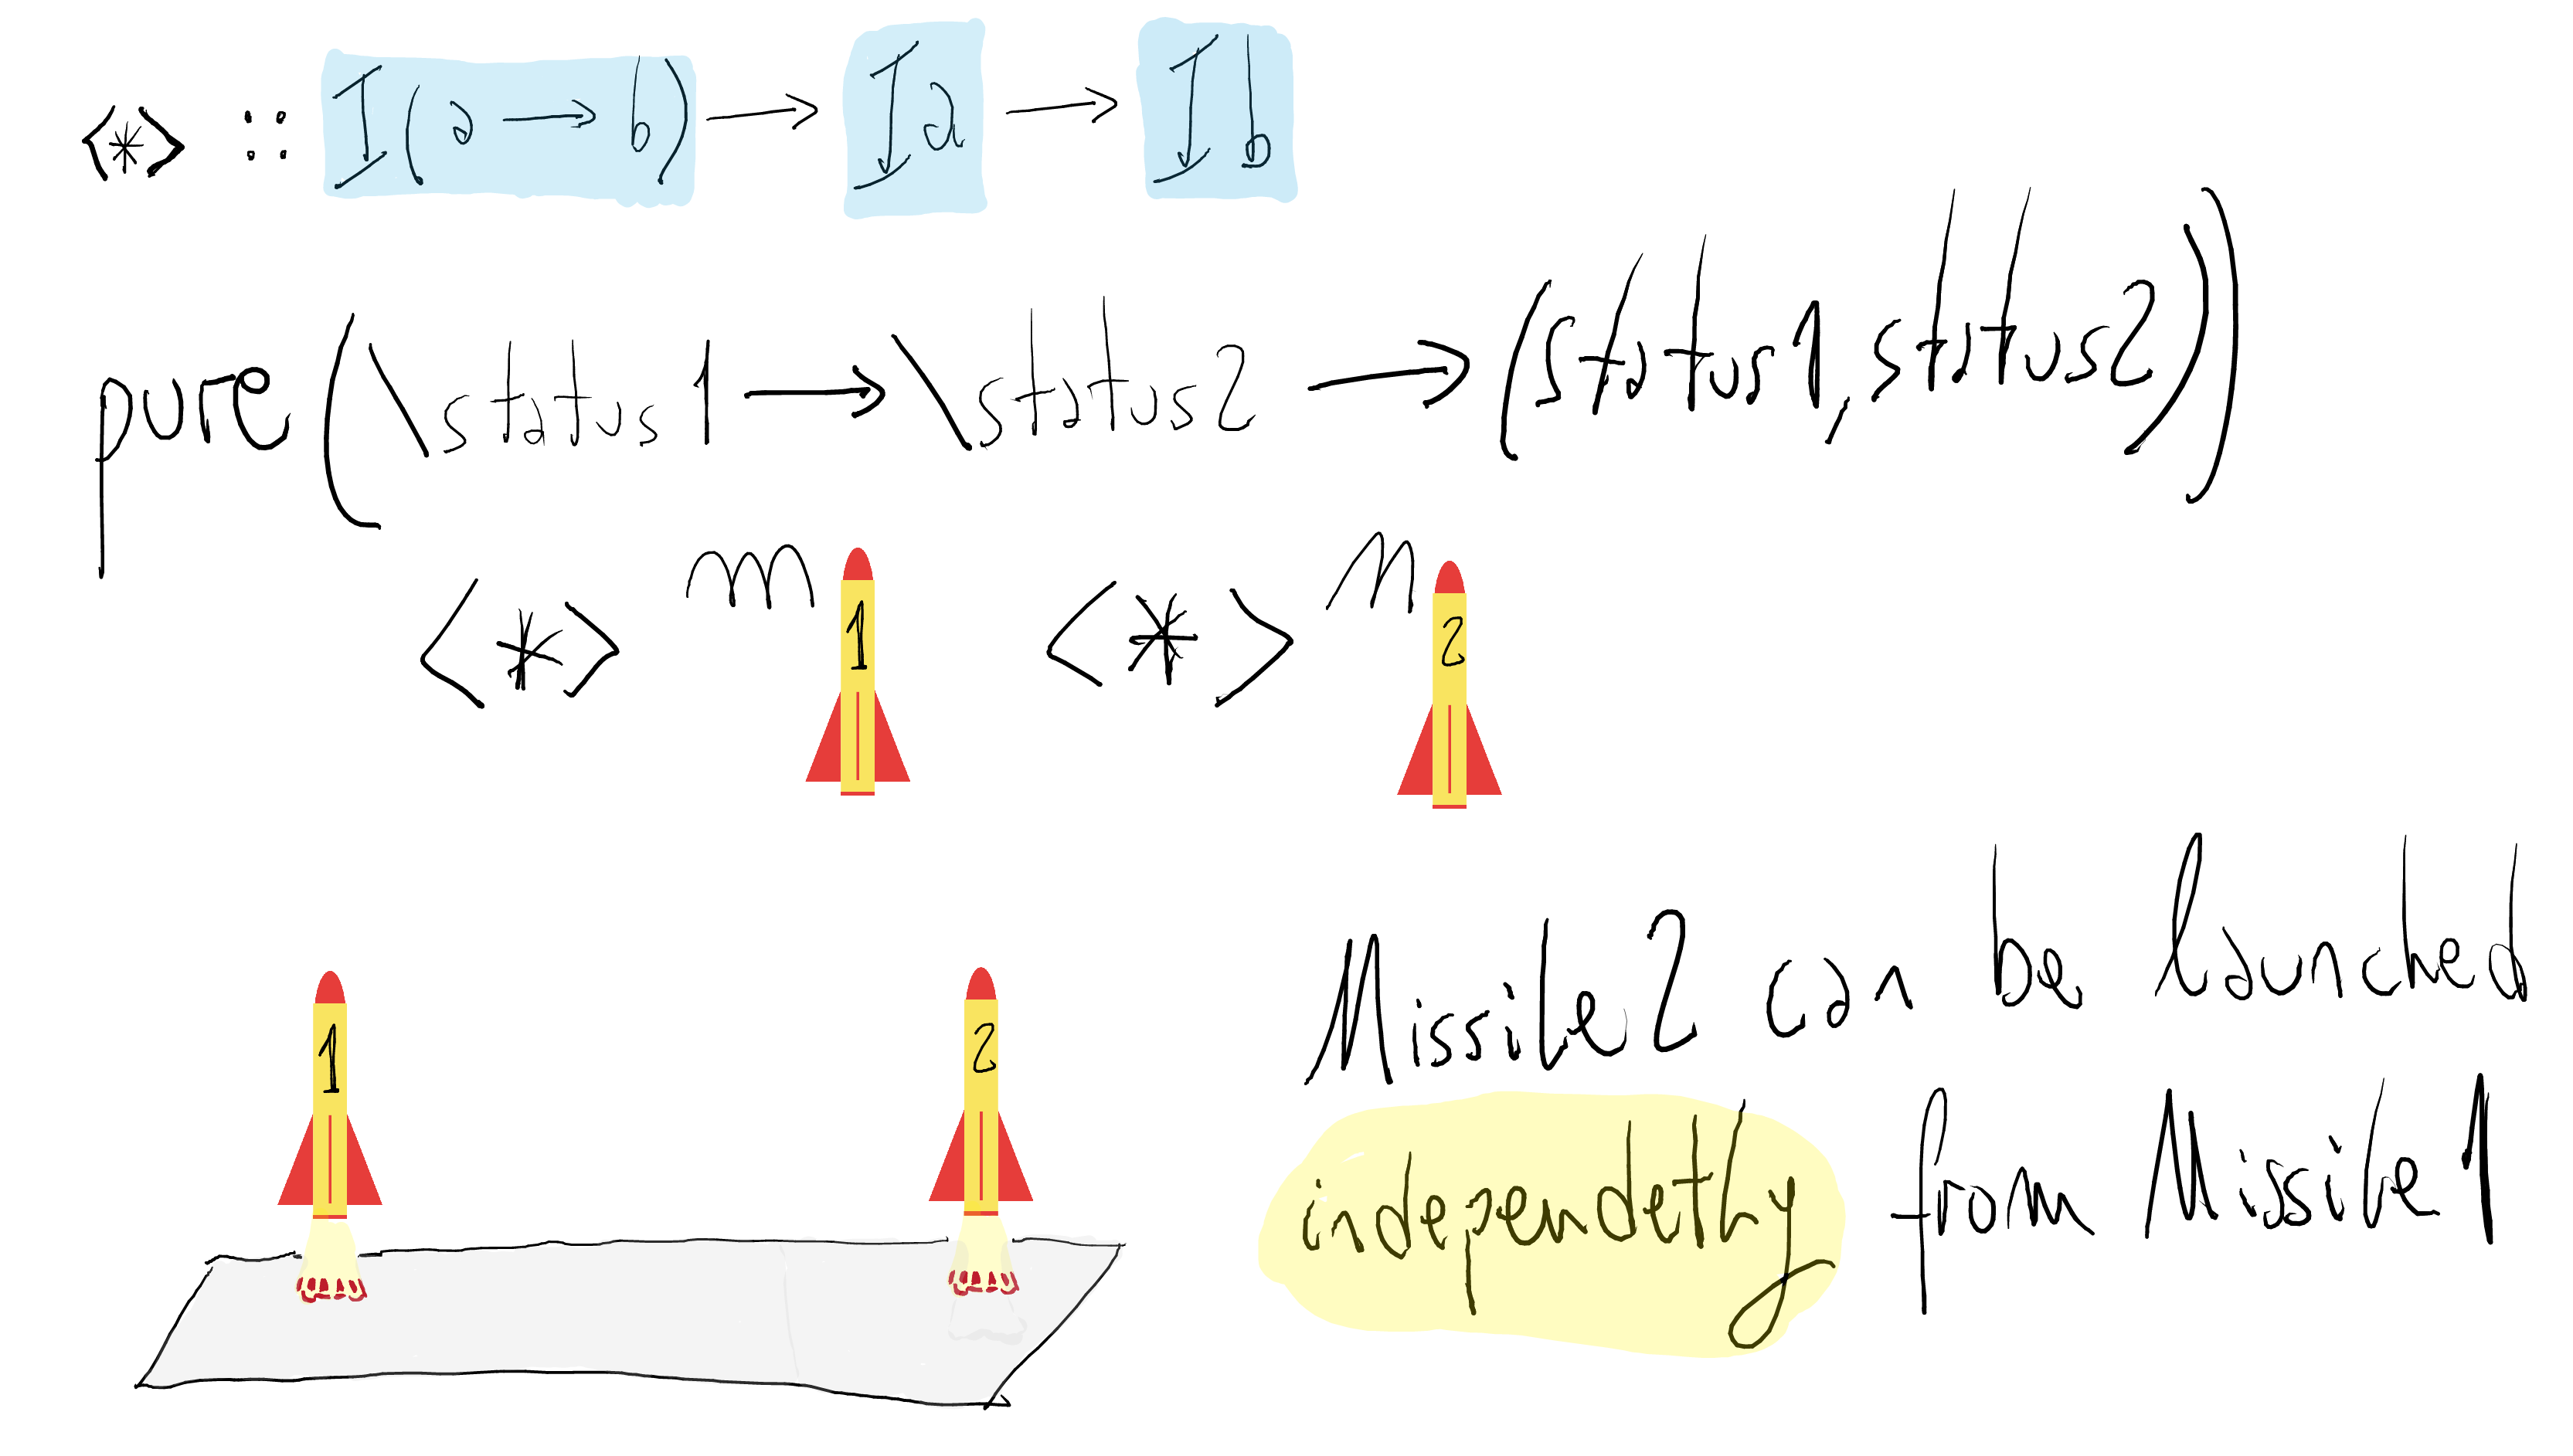 <*> :: I(a → b) → I a → I b
pure(\status1 → \status2 → (status1, status2))
<*> m 1 <*> m 2
1 2
Missile2 can be launched
independethy from Missile1